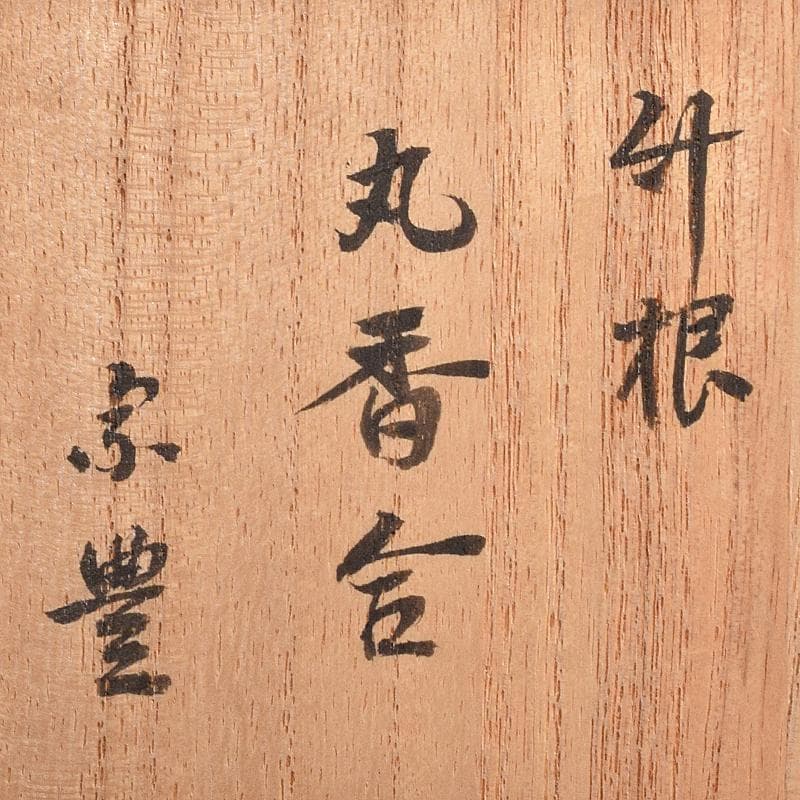 竹根
丸香合
宗豊